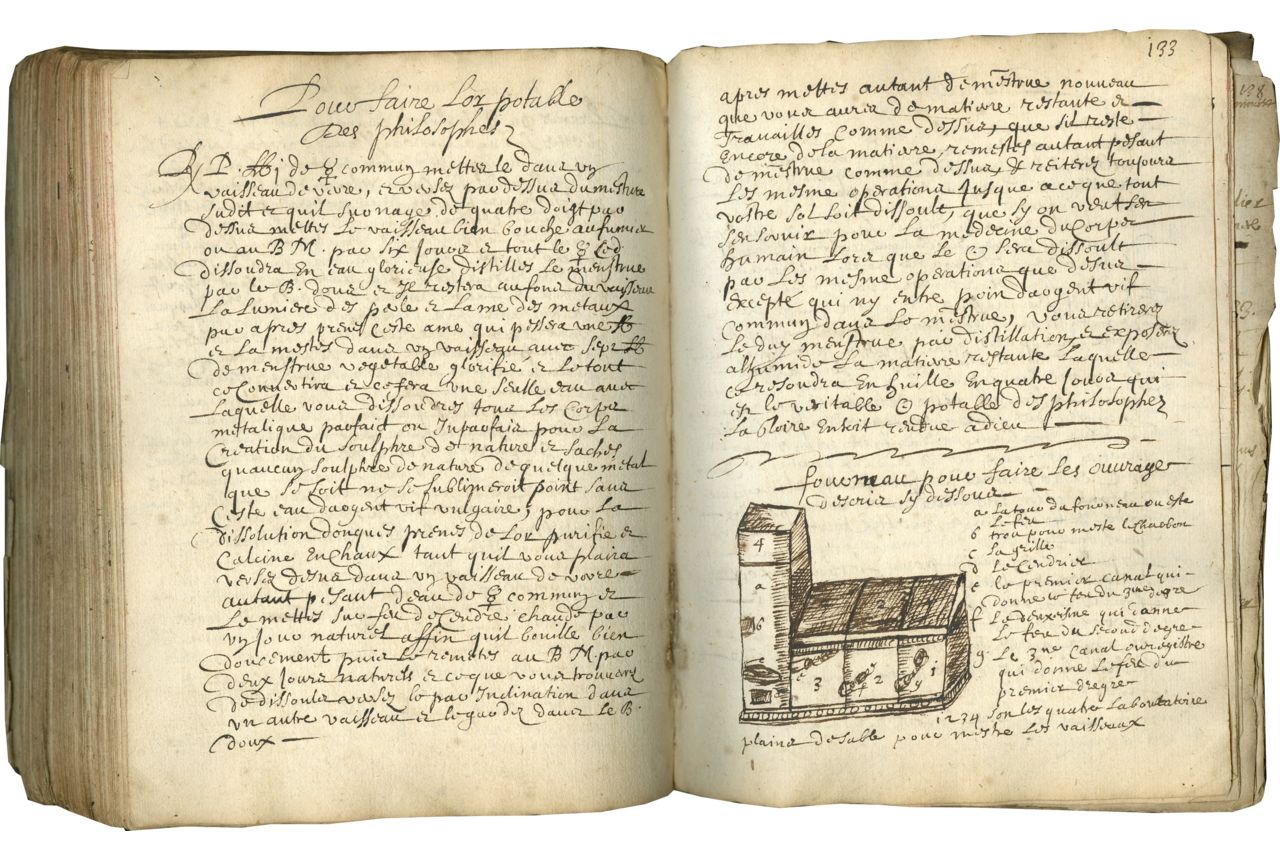 Pour faire lor potable
Des philosophes
℞ P. ℔ j de ☿ commun mettez le dans vn
vaisseau de verre, et versez par dessus du menstrue
sudit et quil surnage de quatre doigt par
dessus mettes le vaisseau bien bouche au fumier
ou au B M. par six jours et tout le ☿ ced
dissoudra En eau glorieuse distilles le menstrue
par le B. doux et Jl restera au fond du vaisseau
La Lumiere des perle et Lame des metaux
par apres prenes Ceste ame qui pesera vne ℔
et La mettes dans vn vaisseau avec sept ℔
de menstrue vegetable glorifie et Le tout
ce Convertira et ce fera vne seulle eau avec
Laquelle vous dissoudres tous Les Corps
metalique parfaict ou Inparfais pour La
Creation du soulphre de nature et saches
quaucun soulphre de nature de quelque metal
que se soit ne se sublimeroit point sans
Ceste eau dargent vif vulgaire, pour La
dissolution donques prenes de Lor purifie et
Calcine En Chaux tant quil vous plaira
verses desus dans vn vaisseau de verre
autant pesant deau de ☿ commun et
Le mettes sur feu de Cendre chaude par
vn jour naturel affin quil bouille bien
doucement puis Le remetes au B M par
deux jours naturels et ce que vous trouveres
de dissoult verses le par Inclination dans
vn autre vaisseau et le gardez dans le B.
doux
133
apres mettes autant de menstrue nouveau
que vous aures de matiere restante et
Travailles Comme dessus, que sil reste
Encore de la matiere, remestes autant pesant
de menstrue comme dessus, & reiterez toujours
Les mesme operations Jusque a ce que tout
vostre sol soit dissoult, que sy on veut sen
servir pour La medecine du Corps
humain Lors que le ☉ sera dissoult
par Les mesme operations que desus
Excepte qui ny entre poin dargent vif
Commun dans Le menstrue, vous retireres
Le dny menstrue par distillation et exposerez
a Lhumide La matiere restante Laquelle
ce resoudra En huille En quatre Jours qui
est le veritable ☉ potable des philosophez
La Gloire En soit rendue a dieu
fourneau pour faire Les ouvrage
descris sy dessous
a La tour du fourneau ou est
Le feu
b trou pour mestre le charbon
c La grille
d Le Cendrier
e le premier canal qui
donne le feu du 3me degre
f Le deuxiesme qui donne
Le feu du second degre
g Le 3me Canal ou registre
qui donne Le feu du
premier degre
1 2 3 4 son les quatre Labouratoire
plains de sable pour mestre Les vaisseaux
4
a
b
c
d
3
2
1
3
2
1
e
f
g
138